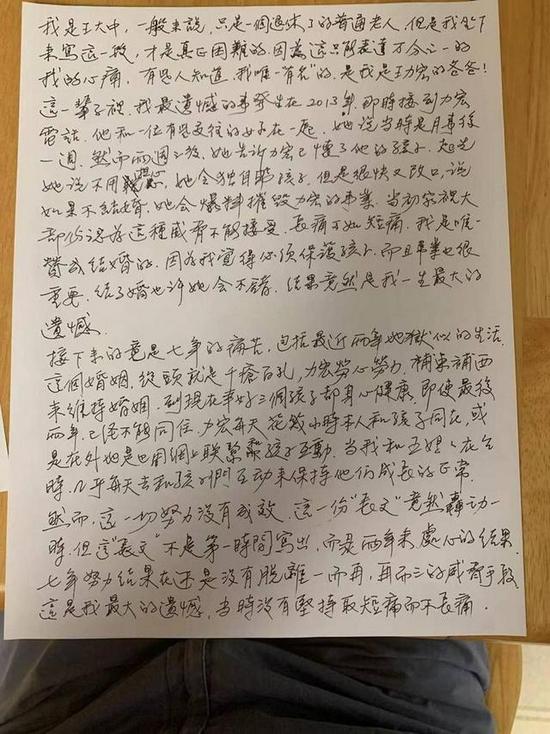 我是王大中,一般来說,只是一個退休了的普通老人,但是我坐下
来寫這一段,才是真正困難的,因為這只能表達万分之一的
我的心痛,有些人知道,我唯一"有名"的,是我是王力宏的爸爸!
這一輩子裡,我最遺憾的事發生在2013年,那時接到力宏
電話,他和一位有些交往的女子在一起,她說當時是月事後
一週,然而兩週之後,她告訴力宏已懷了他的孩子,起先
她說不用担心,她會独自聪孩子,但是很快又改口,說
如果不結婚,她會爆料摧毀力宏的事業,當初家裡大
部份認為這種威脅不能接受,長痛不如短痛,我是唯一
贊成結婚的,因為我覺得必須保護孩子,而且事業也很
重要,結了婚也許她會不錯,結果竟然是我一生最大的
遺憾.
接下来的竟是七年的痛苦,包括最近兩年地獄似的生活
這個婚姻,從頭就是千瘡百孔,力宏勞心勞力,補東補西
来維持婚姻,到現在幸好三個孩子都身心健康,即使最後
兩年,已経不能同住,力宏每天花幾小時本人和孩子同在,或
是在外地也用網上联繫和孩子互動,當我和五妞々在台
時,几乎每天去和孩子們互動来保持他們成長的正常
然而,這一切努力没有成效,這一份"長文"竟然轟动一
時,但這"長文"不是第一時間寫出,而是兩年来處心的結果
七年努力結果在还是没有脱離一而再,再而三的威脅手段
這是我最大的遺憾,當時没有堅持取短痛而不長痛.